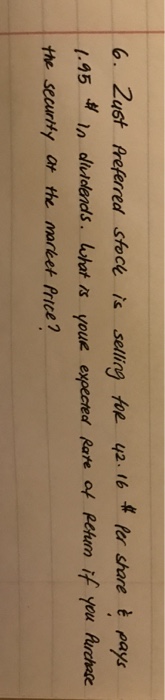 6. Zust Preferred stock is selling for 42.16 $ Per share & pays
1.95 $ in dividends. What is your expected Rate of Return if you Purchase
the security at the market Price?